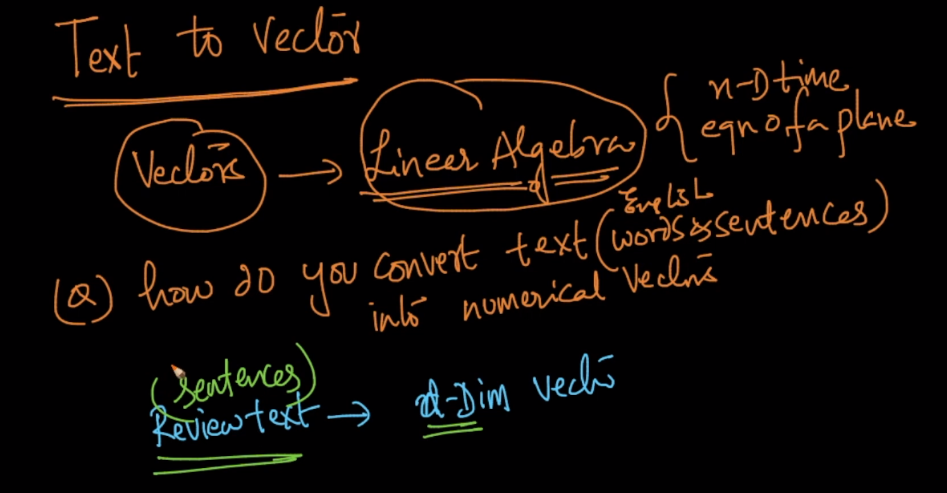 Text to Vector
Vectors → Linear Algebra { n-D time
eqn of a plane
(Q) how do you convert text (English words & sentences)
into numerical Vectors
(sentences)
Review text → d-Dim vector